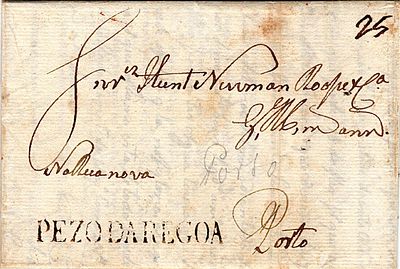 25
Snr.es Hunt Newman Roope & Ca.
Na Rua nova
Porto
PEZO DA REGOA
Porto